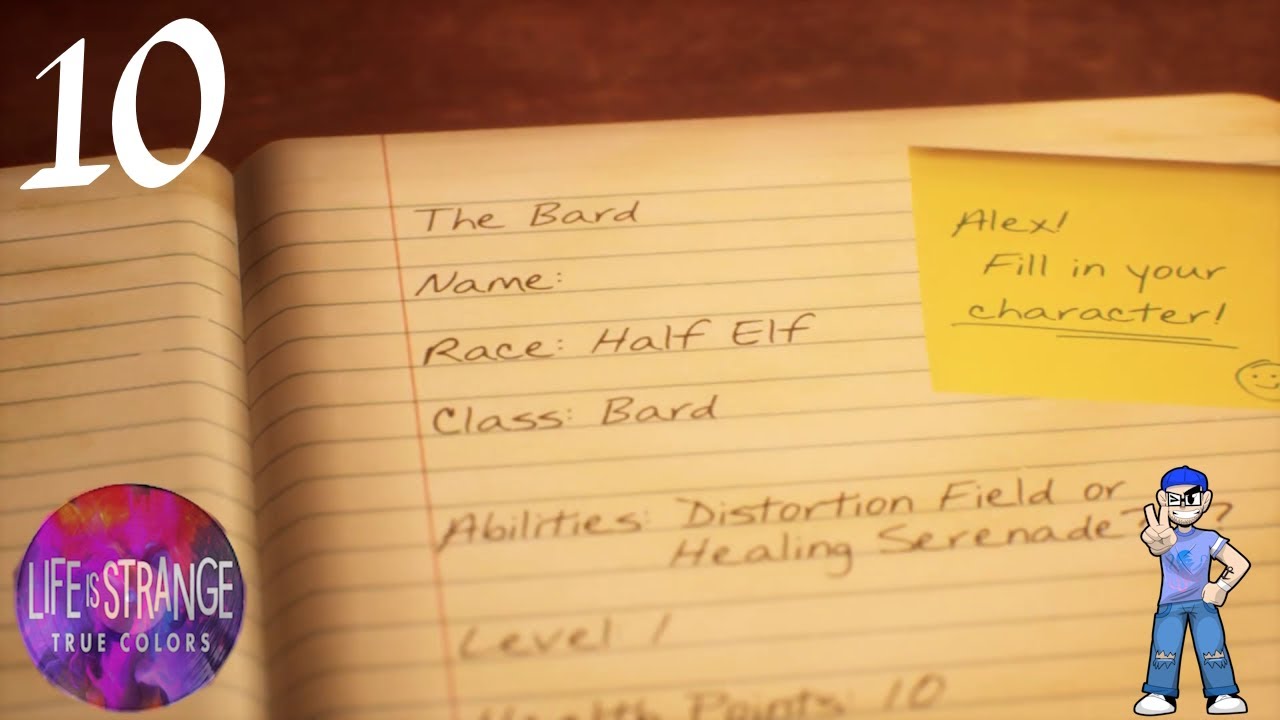 10
The Bard
Name:
Race: Half Elf
Class: Bard
Abilities: Distortion Field or
Healing Serenade
Level 1
Health Points: 10
Alex!
Fill in your
character!
LIFE IS STRANGE
TRUE COLORS